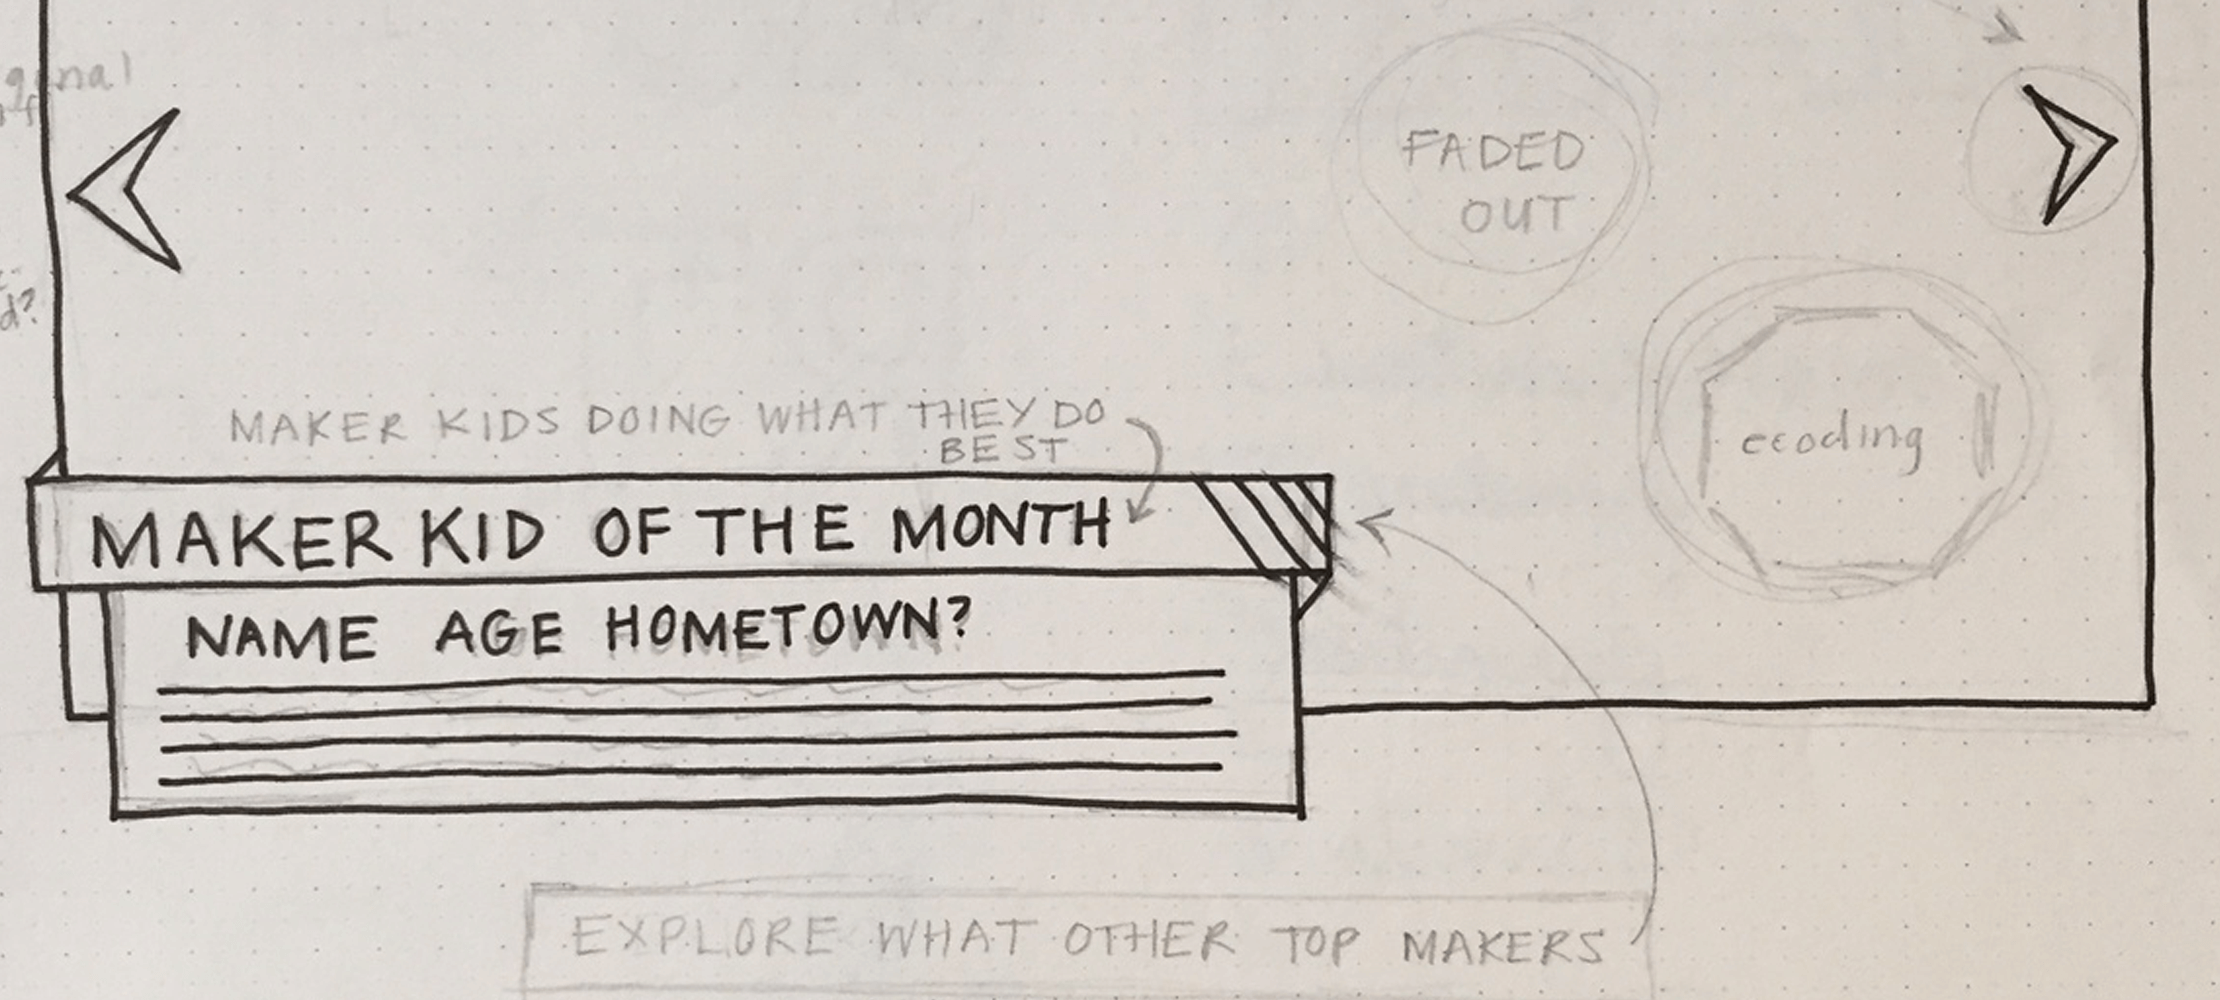 FADED
OUT
ecoding
MAKER KIDS DOING WHAT THEY DO
BEST
MAKER KID OF THE MONTH
NAME AGE HOMETOWN?
EXPLORE WHAT OTHER TOP MAKERS